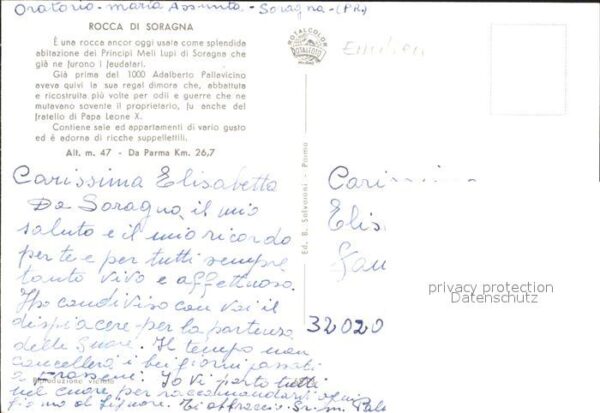 Oratorio - Maria Assunta - Soragna - (PR)
ROCCA DI SORAGNA
È una rocca ancor oggi usata come splendida
abitazione dei Principi Meli Lupi di Soragna che
già ne furono i feudatari.
Già prima del 1000 Adalberto Pallavicino
aveva quivi la sua regal dimora che, abbattuta
e ricostruita più volte per odii e guerre che ne
mutavano sovente il proprietario, fu anche del
fratello di Papa Leone X.
Contiene sale ed appartamenti di vario gusto
ed è adorna di ricche suppellettili.
Alt. m. 47 - Da Parma Km. 26,7
ROTALCOLOR
ROTALFOTO
MILANO
Carissima Elisabetta
Da Soragna, il mio
saluto e il mio ricordo
per te e per tutti sempre
tanto vivo e affettuoso.
Ho condiviso con voi il
dispiacere per la partenza
delle Suore. Il tempo non
cancellerà i bei giorni passati
a Frassenè. Io Vi porto tutti
nel cuore per raccomandarvi ogni
giorno al Signore. Ti abbraccio
Riproduzione vietata
Ed. B. Salvarani - Parma
Eli
32020
privacy protection
Datenschutz